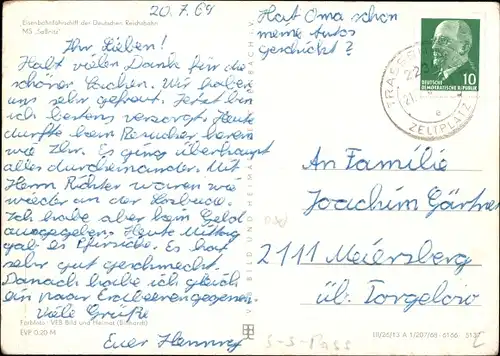 Eisenbahnfährschiff der Deutschen Reichsbahn
MS „Saßnitz"
20.7.69
Ihr Lieben!
Habt vielen Dank für die
schönen Sachen. Wir haben
uns sehr gefreut. Jetzt bin
ich bestens versorgt. Heute
durfte kein Besucher herein
wie Ihr. Es ging überhaupt
alles durcheinander. Mit
Herrn Richter waren wir
wieder an der
Ich habe aber kein Geld
ausgegeben. Heute Mittag
gab es Pfirsiche. Es hat
sehr gut geschmeckt.
Danach habe ich gleich
ein paar Erdbeeren gegessen.
Viele Grüße
Euer Henning
Farbfoto · VEB Bild und Heimat
EVP 0,20 M
VEB BILD UND HEIMAT
Hat Oma schon
meine Autos
geschickt?
10
DEUTSCHE
DEMOKRATISCHE REPUBLIK
ZELTPLATZ
An Familie
Joachim Gärtner
2111 Meiersberg
üb. Torgelow
III/26/13 A 1/207/68 6166